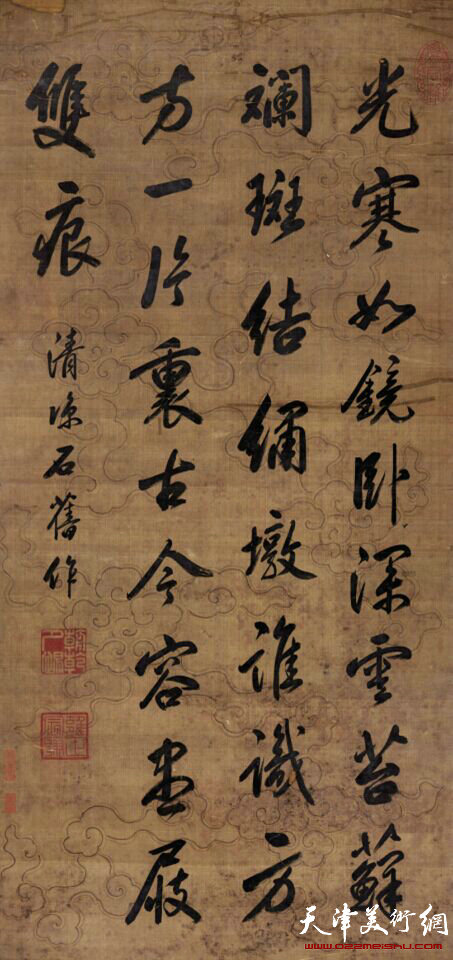 光寒如鏡卧深雲苔蘚
斕斑結繡墩誰識方
方一片裏古今容盡屐
雙痕
清涼石舊作
天津美術網
www.022meishu.com